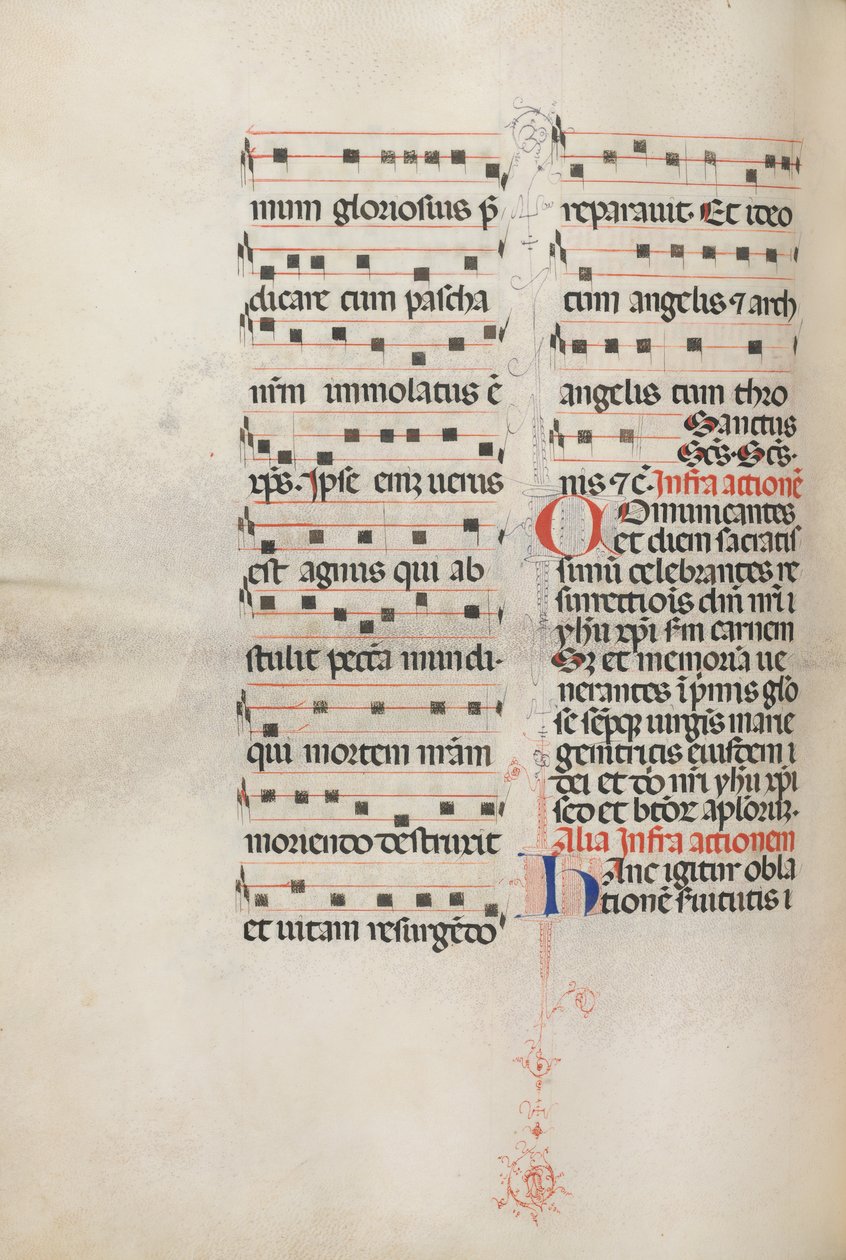 mum gloriosius p̄
dicare cum pascha
nr̄m immolatus ē
xp̄s. Ipse enꝫ uerus
est agnus qui ab
stulit pecc̄a mundi.
qui mortem nr̄am
moriendo destruxit
et uitam resurgēdo
reparauit. Et ideo
cum angelis ⁊ arch
angelis cum thro
Sanctus
Sc̄s. Sc̄s.
nis ⁊ c̄. Infra actionē
COmunicantes
et diem sacratis
simū celebrantes re
surrectiōis dn̄i nr̄i i
yhū xp̄i s̄m carnem
Sꝫ et memoria ue
nerantes ī p̄mis glo
se sēpqꝫ uirgīs marie
genitricis eiusdem i
dei et dō nr̄i yhū xp̄i
sed et btōꝝ aplōruꝫ.
Alia Infra actionem
hAnc igitur obla
tionē suitutis i